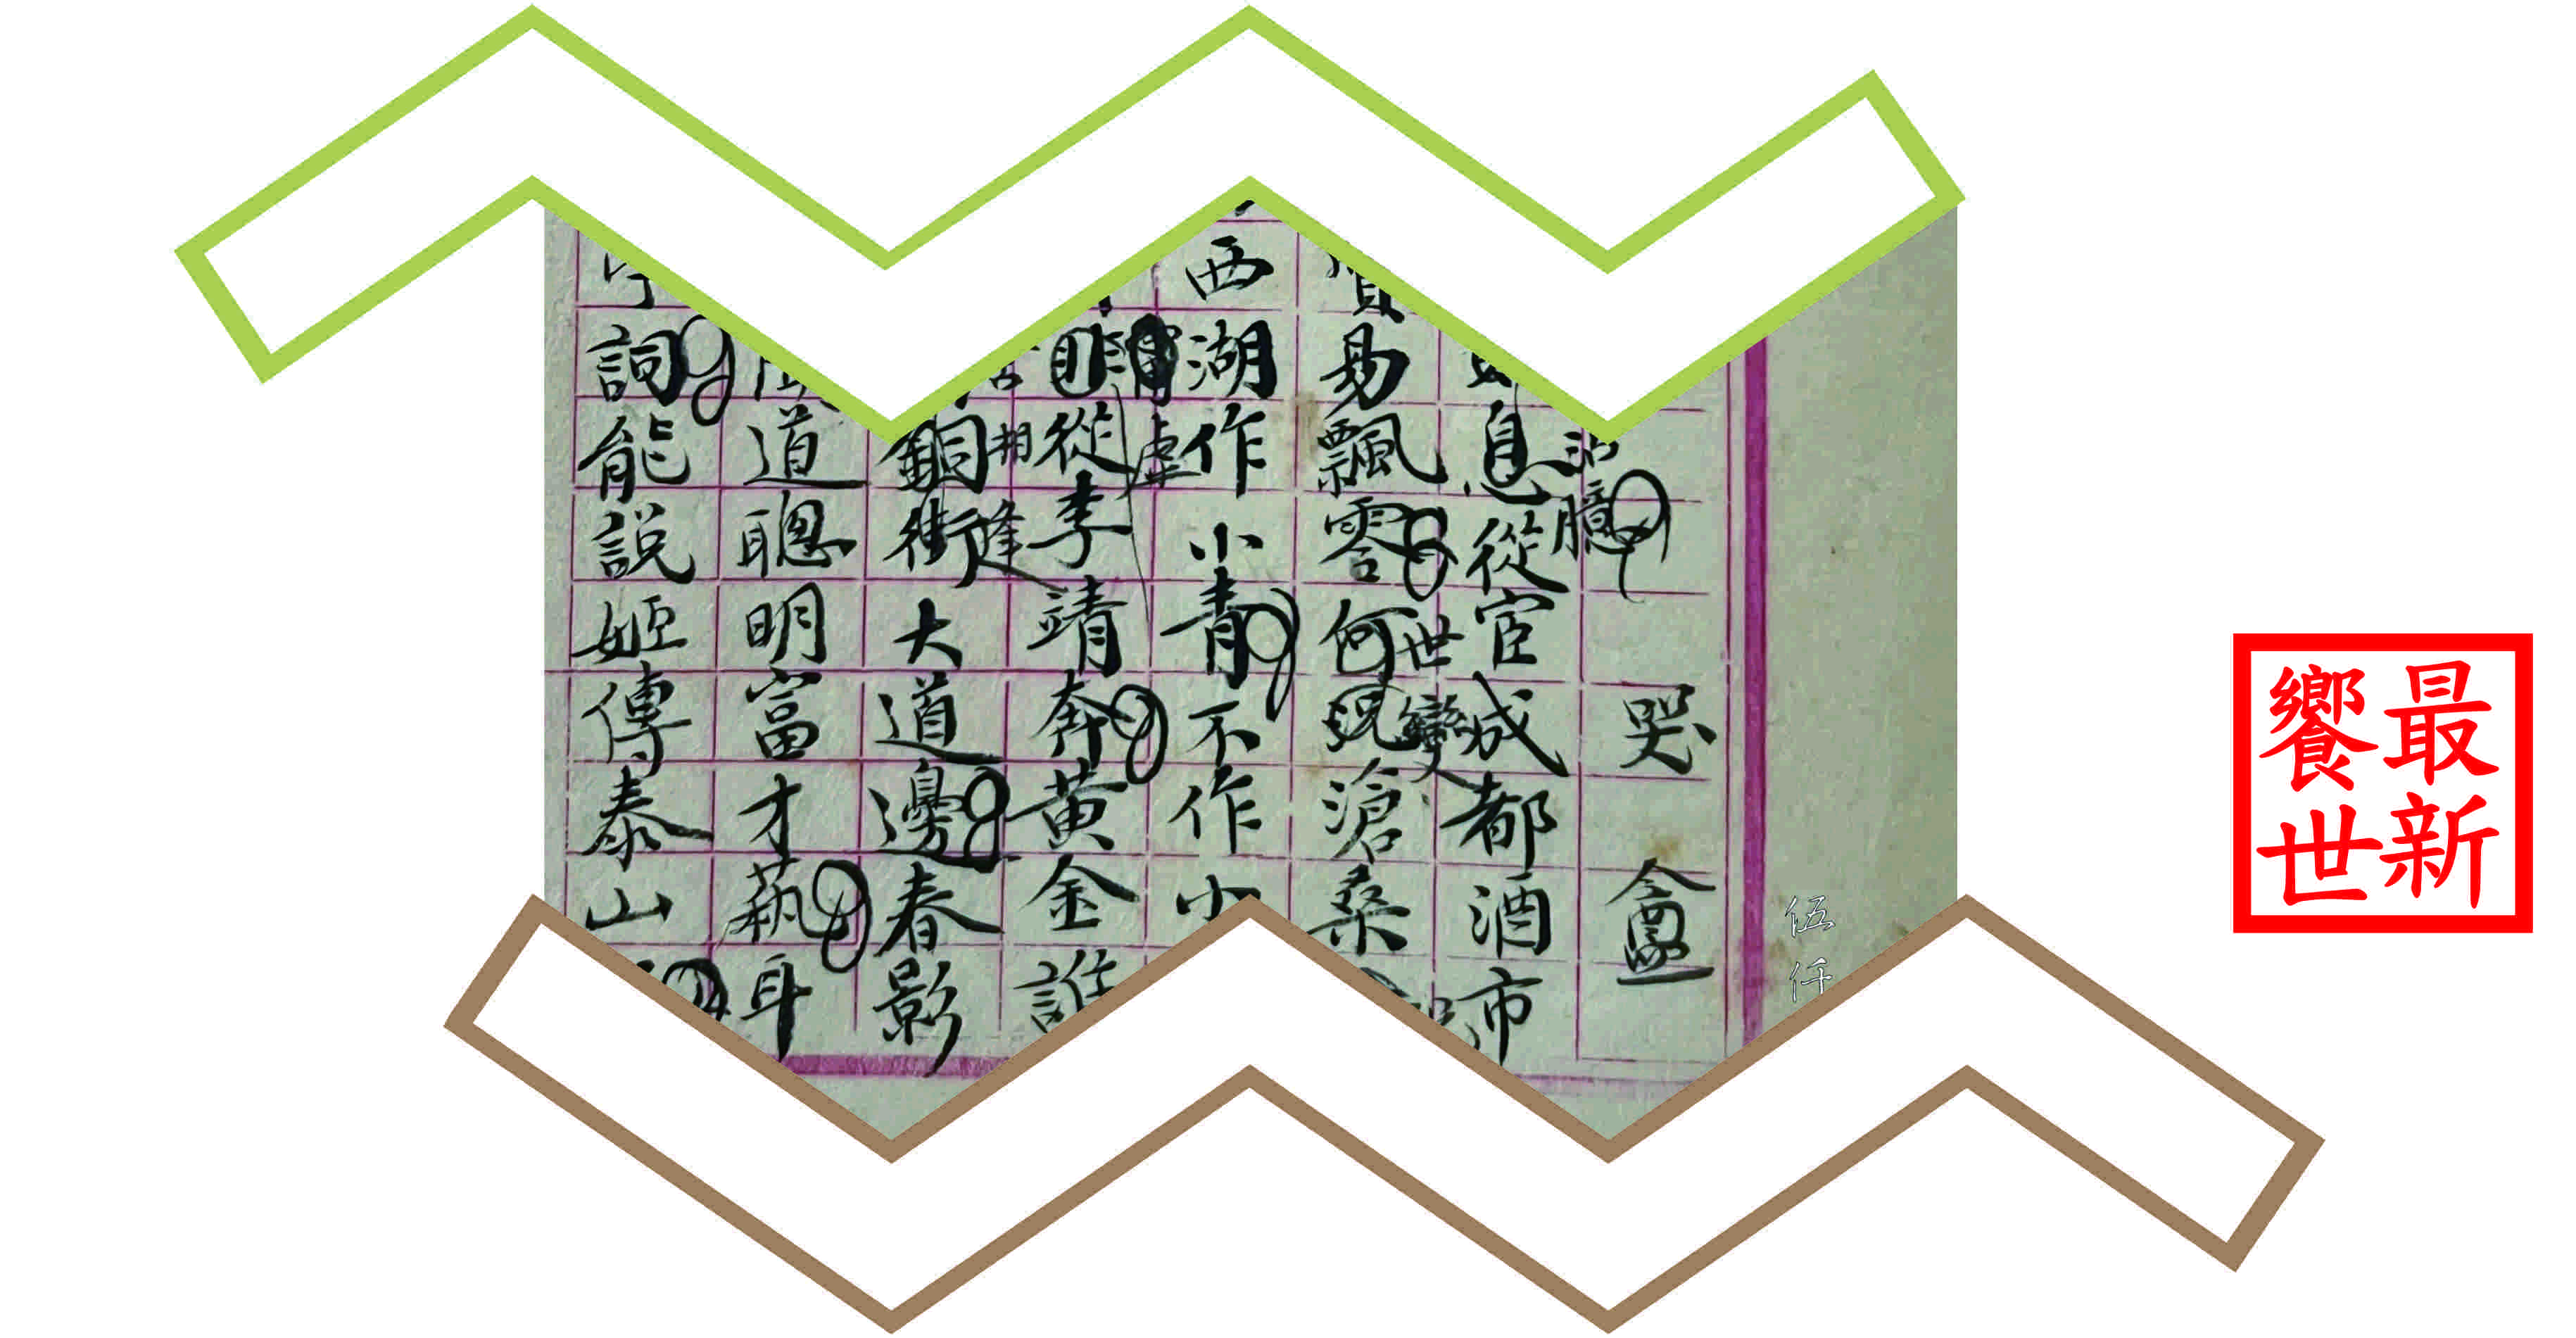 哭盦
息從宦成都酒市
沾臆
易飄零何況滄桑
世變
西湖作小青不作小
從李靖奔黃金誰
虛
相逢
銅街大道邊春影
道聰明富才藝耳
詞能説姬傳泰山
伍仟
最新
饗世